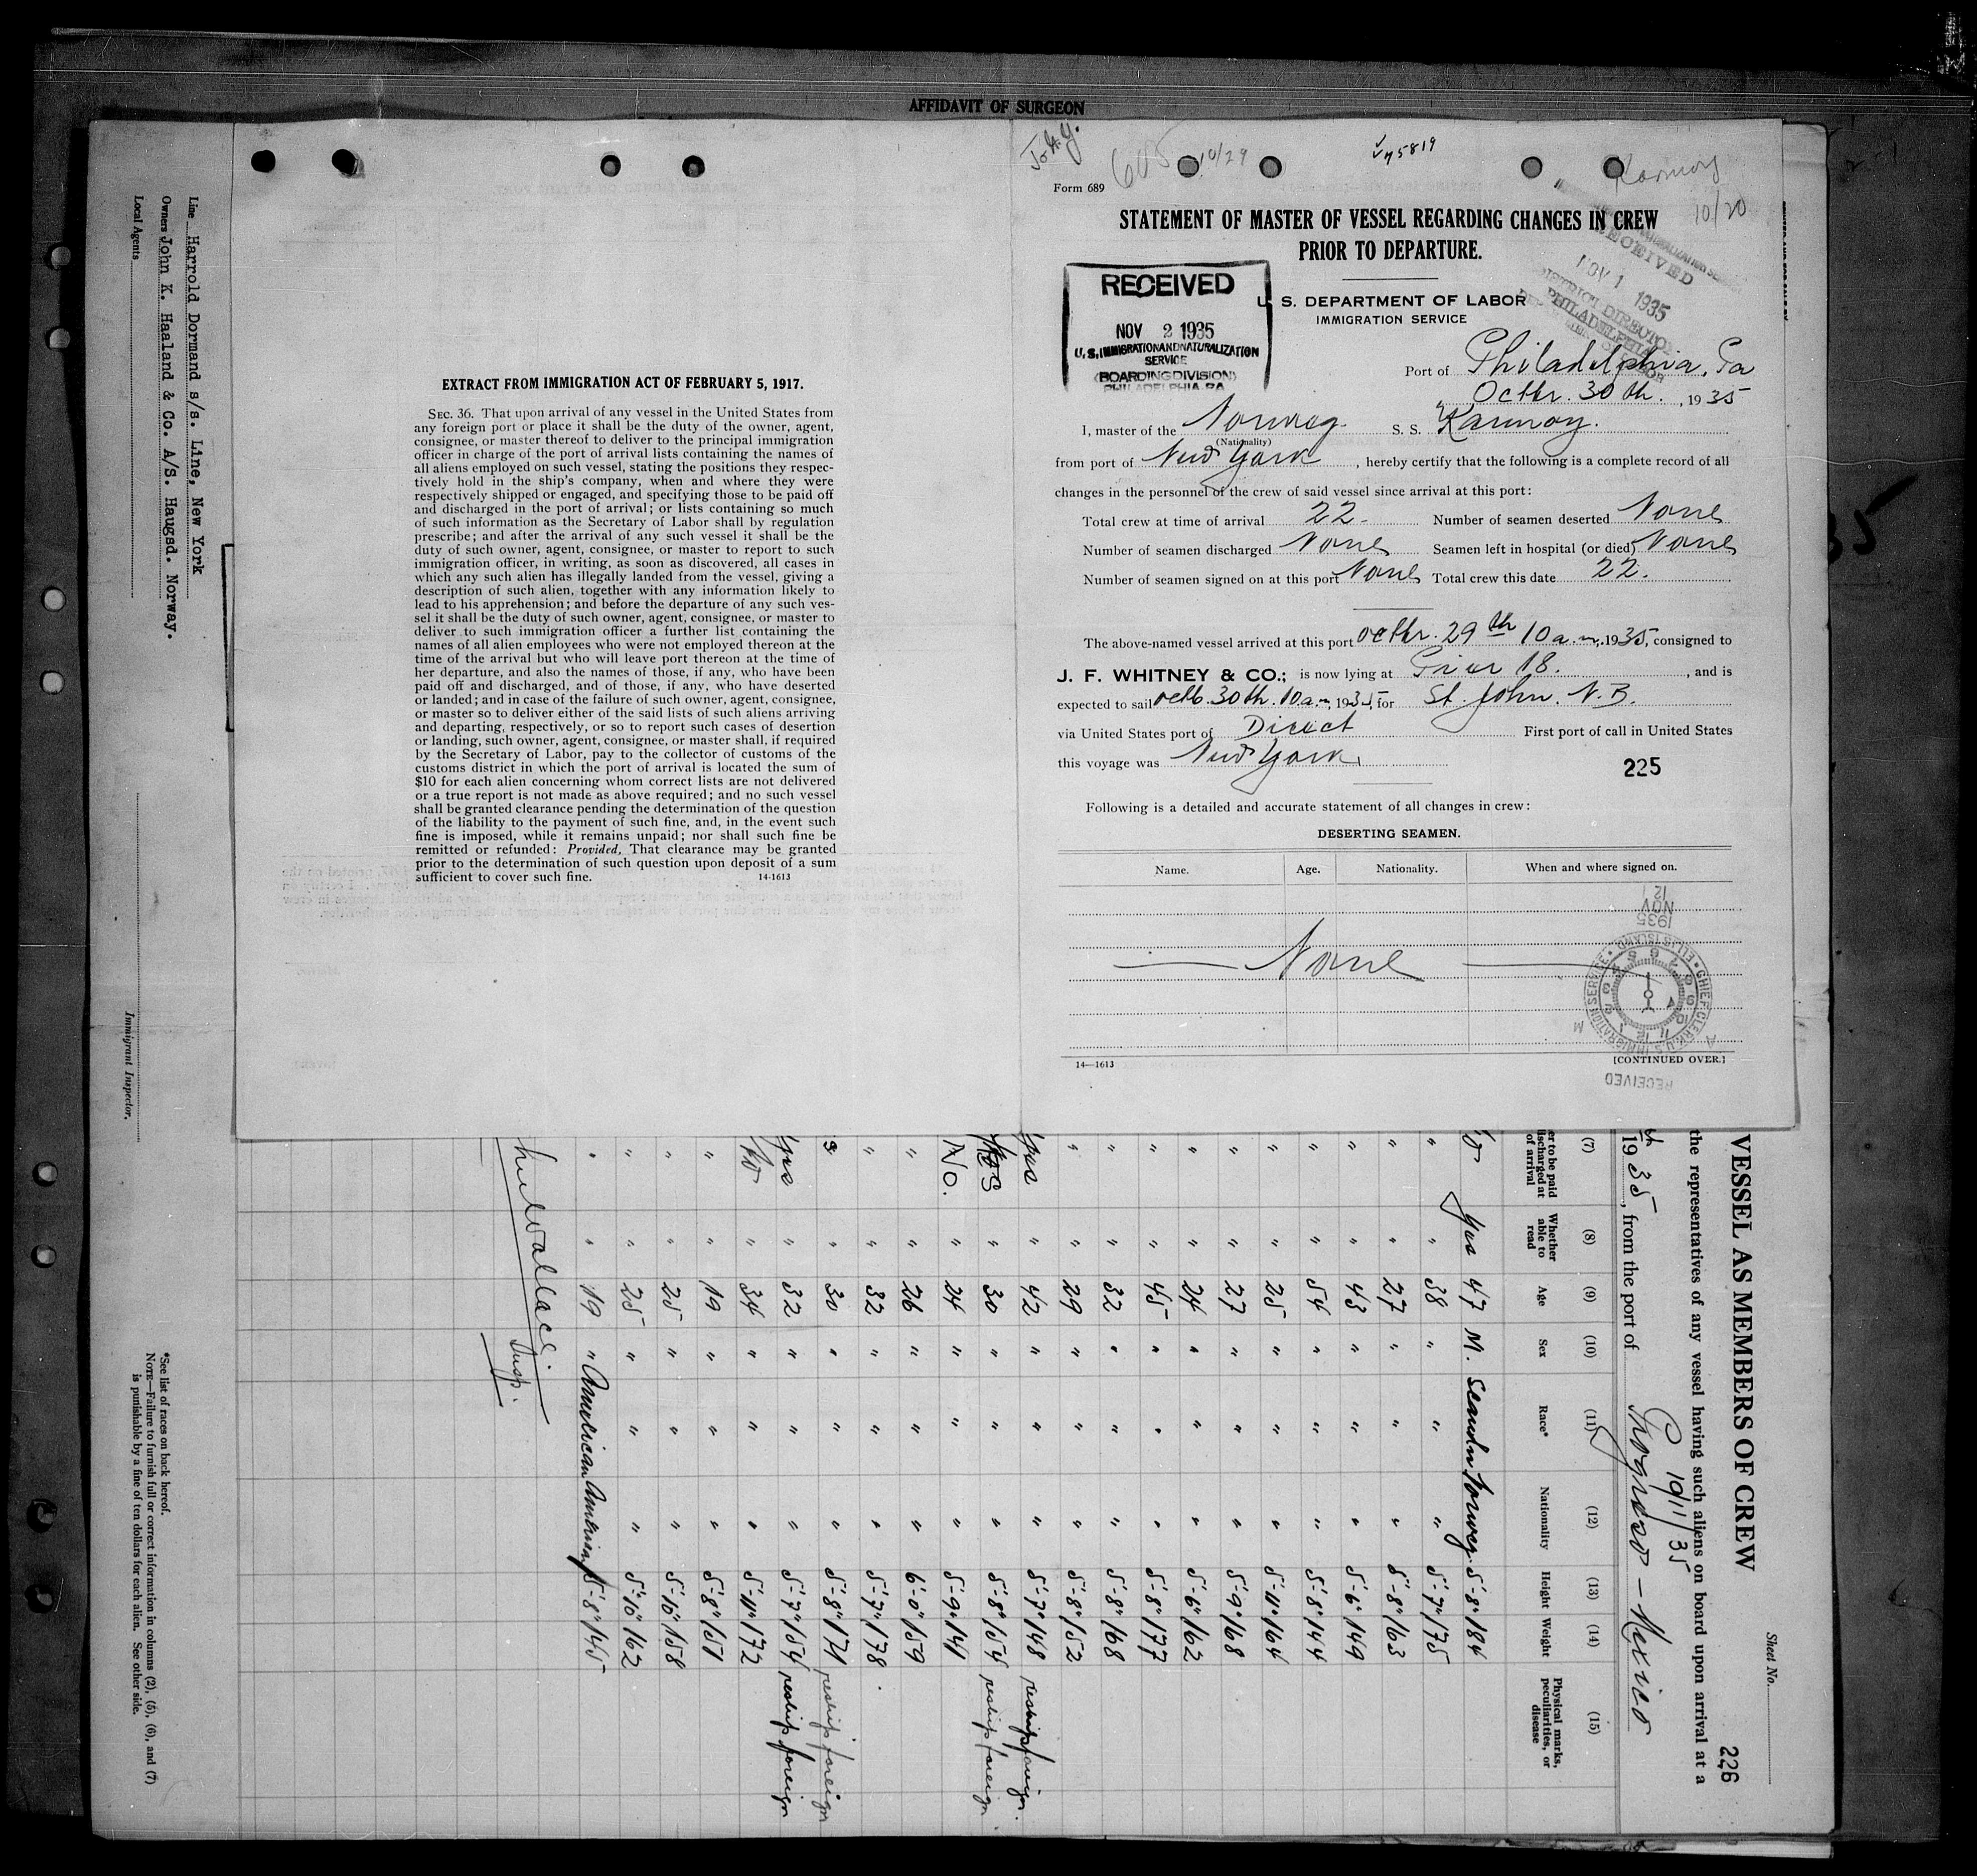 AFFIDAVIT OF SURGEON
Line Harrold Dormand s/s. Line, New York
Owners John K. Haaland & Co. A/S. Haugsd. Norway.
Local Agents
Immigrant Inspector.
EXTRACT FROM IMMIGRATION ACT OF FEBRUARY 5, 1917.
SEC. 36. That upon arrival of any vessel in the United States from
any foreign port or place it shall be the duty of the owner, agent,
consignee, or master thereof to deliver to the principal immigration
officer in charge of the port of arrival lists containing the names of
all aliens employed on such vessel, stating the positions they respec-
tively hold in the ship's company, when and where they were
respectively shipped or engaged, and specifying those to be paid off
and discharged in the port of arrival; or lists containing so much
of such information as the Secretary of Labor shall by regulation
prescribe; and after the arrival of any such vessel it shall be the
duty of such owner, agent, consignee, or master to report to such
immigration officer, in writing, as soon as discovered, all cases in
which any such alien has illegally landed from the vessel, giving a
description of such alien, together with any information likely to
lead to his apprehension; and before the departure of any such ves-
sel it shall be the duty of such owner, agent, consignee, or master to
deliver to such immigration officer a further list containing the
names of all alien employees who were not employed thereon at the
time of the arrival but who will leave port thereon at the time of
her departure, and also the names of those, if any, who have been
paid off and discharged, and of those, if any, who have deserted
or landed; and in case of the failure of such owner, agent, consignee,
or master so to deliver either of the said lists of such aliens arriving
and departing, respectively, or so to report such cases of desertion
or landing, such owner, agent, consignee, or master shall, if required
by the Secretary of Labor, pay to the collector of customs of the
customs district in which the port of arrival is located the sum of
$10 for each alien concerning whom correct lists are not delivered
or a true report is not made as above required; and no such vessel
shall be granted clearance pending the determination of the question
of the liability to the payment of such fine, and, in the event such
fine is imposed, while it remains unpaid; nor shall such fine be
remitted or refunded: Provided, That clearance may be granted
prior to the determination of such question upon deposit of a sum
sufficient to cover such fine. 14-1613
605 10/29
Karmoy
10/20
Form 689
STATEMENT OF MASTER OF VESSEL REGARDING CHANGES IN CREW
PRIOR TO DEPARTURE.
RECEIVED
NOV 2 1935
U. S. IMMIGRATION AND NATURALIZATION
SERVICE
(BOARDING DIVISION)
PHILADELPHIA. PA.
RECEIVED
NOV 1 1935
DISTRICT DIRECTOR
PHILADELPHIA
U. S. DEPARTMENT OF LABOR
IMMIGRATION SERVICE
Port of Philadelphia, Pa
Octbr. 30th. , 1935
I, master of the Norweg. S. S. Karmoy.
(Nationality)
from port of New York , hereby certify that the following is a complete record of all
changes in the personnel of the crew of said vessel since arrival at this port:
Total crew at time of arrival 22. Number of seamen deserted None
Number of seamen discharged None Seamen left in hospital (or died) None
Number of seamen signed on at this port None Total crew this date 22.
The above-named vessel arrived at this port octbr. 29th 10 a.m., 1935, consigned to
J. F. WHITNEY & CO.; is now lying at Prier 18. , and is
expected to sail octb. 30th. 10 a.m, 1935, for St. John. N.B.
via United States port of Direct First port of call in United States
this voyage was New York.
225
Following is a detailed and accurate statement of all changes in crew:
DESERTING SEAMEN.
Name. Age. Nationality. When and where signed on.
None
1935 NOV 12
CHIEF CLERK U.S. IMMIGRATION SERVICE ELLIS ISLAND
RECEIVED
14—1613 [CONTINUED OVER.]
Sheet No.
226
VESSEL AS MEMBERS OF CREW
the representatives of any vessel having such aliens on board upon arrival at a
10/11/35
1935, from the port of Progreso - Mexico
(7) (8) (9) (10) (11) (12) (13) (14) (15)
er to be paid discharged at of arrival Whether able to read Age Sex Race* Nationality Height Weight Physical marks, peculiarities, or disease
No Yes 47 M. Scandn Norweg. 5'-8" 184
" " 38 " " " 5'-7" 175
" " 27 " " " 5'-8" 163
" " 43 " " " 5'-6" 149
" " 54 " " " 5'-8" 144
" " 25 " " " 5'-11" 164
" " 27 " " " 5'-9" 168
" " 24 " " " 5'-6" 162
" " 45 " " " 5'-8" 177
" " 32 " " " 5'-8" 168
" " 29 " " " 5'-8" 152
Yes " 42 " " " 5'-7" 148 reship foreign.
Yes " 30 " " " 5'-8" 154 reship foreign.
No. " 24 " " " 5'-9" 141
" " 26 " " " 6'-0" 159
" " 32 " " " 5'-7" 178
" 30 " " " 5'-8" 171 reship foreign
Yes " 32 " " " 5'-7" 154 reship foreign
No " 34 " " " 5'-11" 172
" " 19 " " " 5'-8" 151
" " 25 " " " 5'-10" 158
" " 25 " " " 5'-10" 162
" " 19 " American American 5'-8" 145
Wallace.
Insp.
*See list of races on back hereof.
NOTE—Failure to furnish full or correct information in columns (2), (5), (6), and (7)
is punishable by a fine of ten dollars for each alien. See other side.